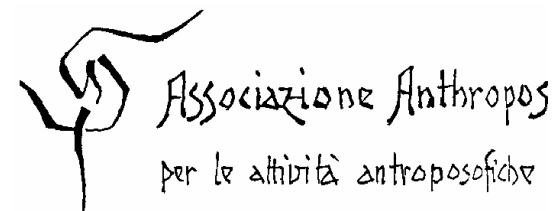 Associazione Anthropos
per le attività antroposofiche